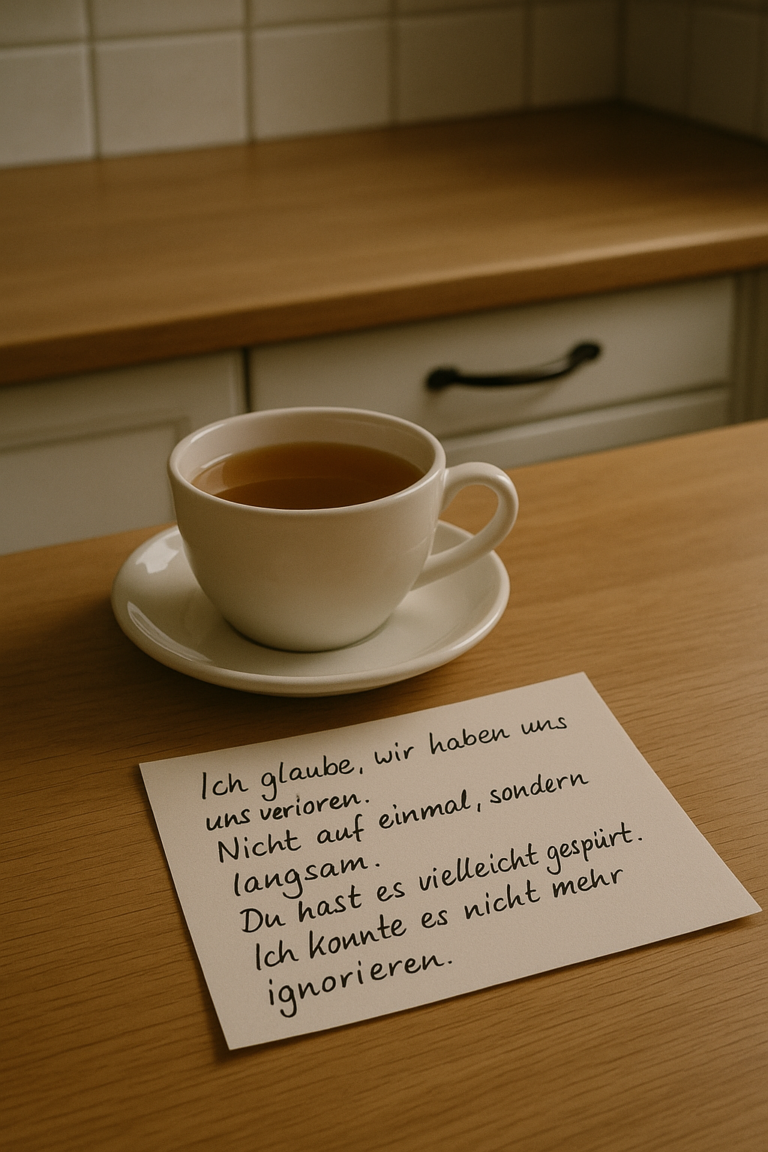 Ich glaube, wir haben uns
uns verioren.
Nicht auf einmal, sondern
langsam.
Du hast es vielleicht gespürt.
Ich konnte es nicht mehr
ignorieren.